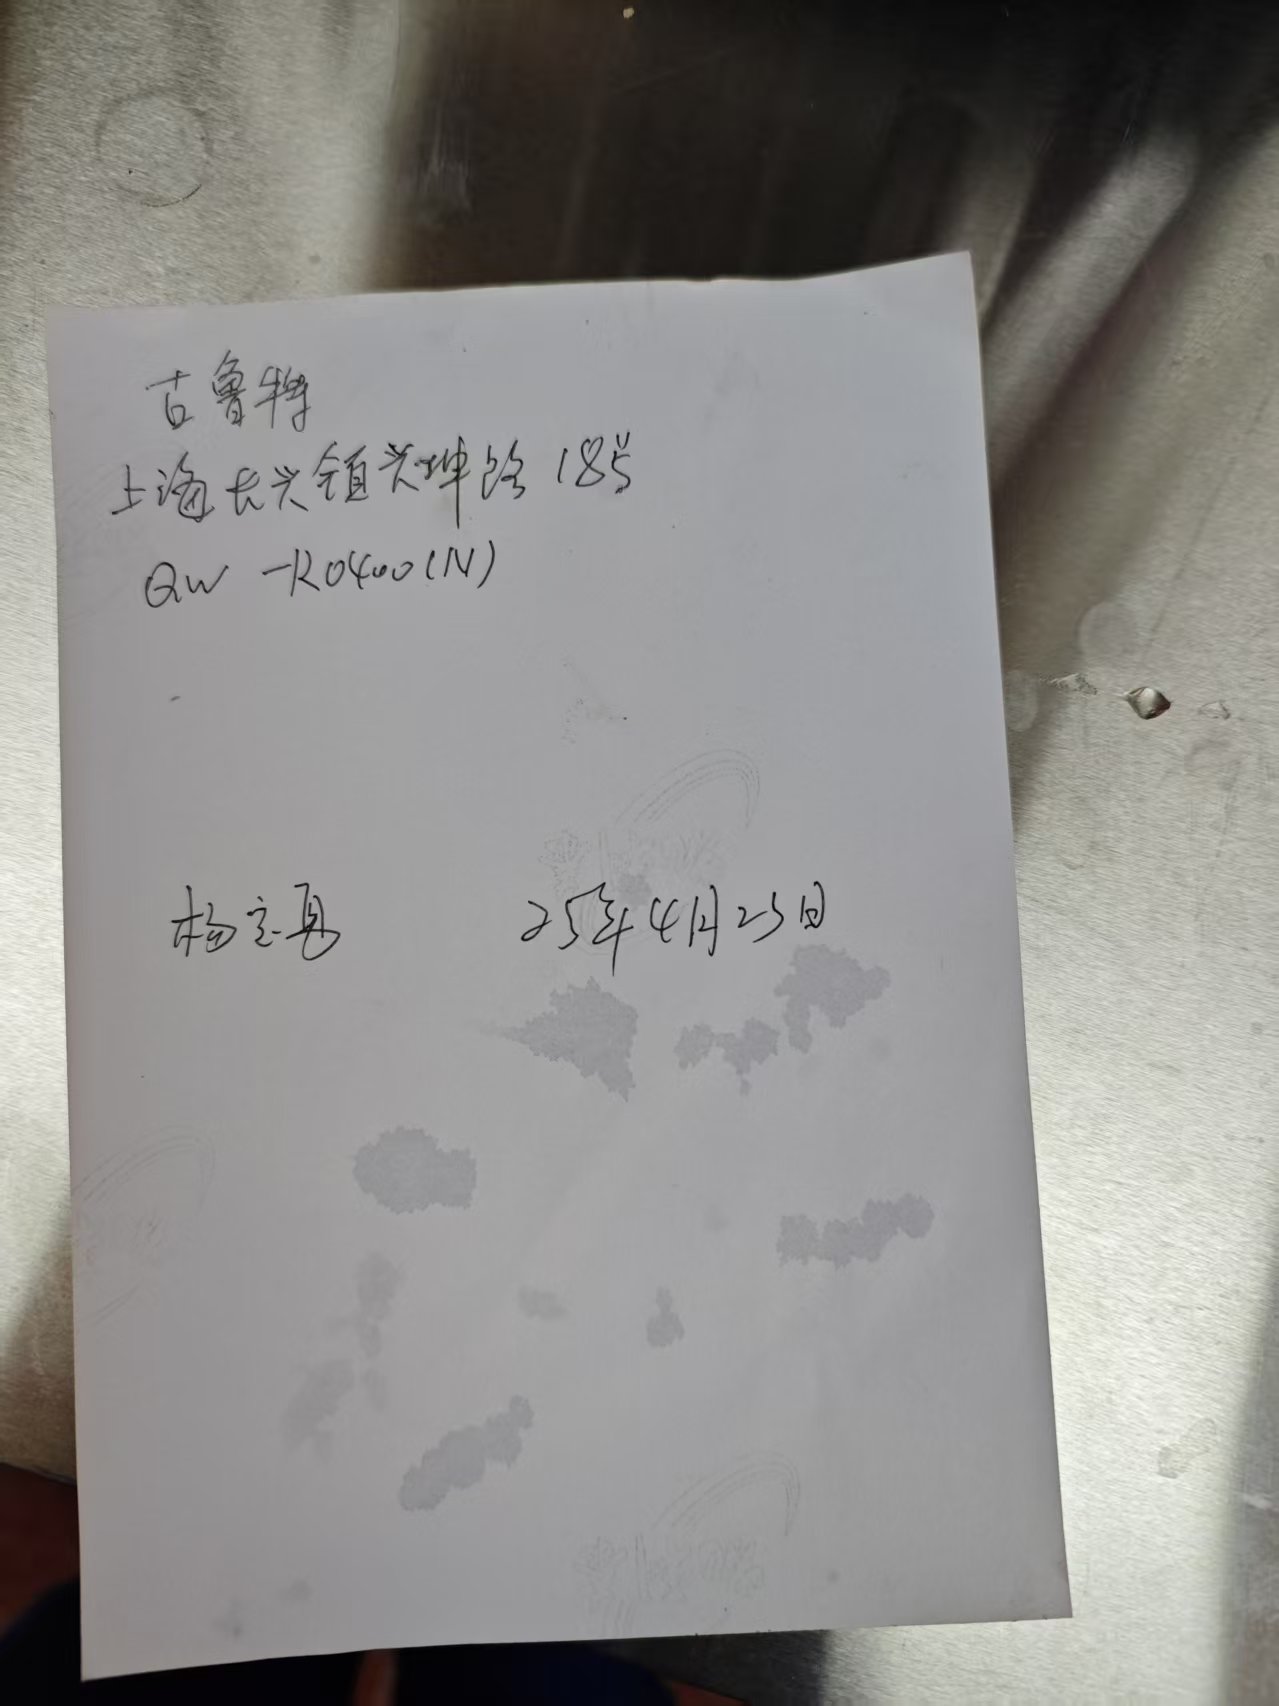 古鲁特
上海长兴镇兴坤路18号
QW-R0400(N)
杨立夏 25年4月23日